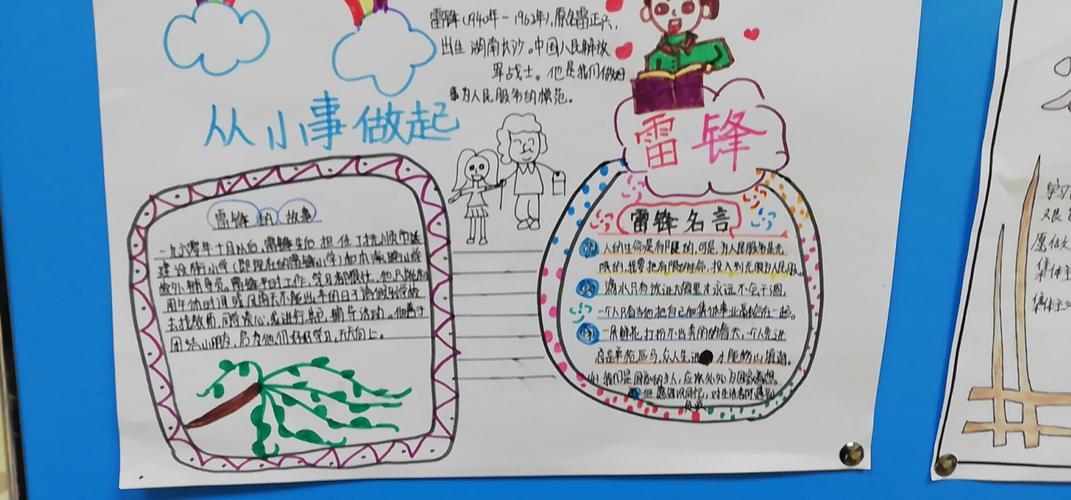 雷锋(1940年-1962年),原名雷正兴,
出生 湖南长沙。中国人民解放
军战士。他是我们做
事为人民服务的模范。
从小事做起
雷锋
雷锋的故事
一九六零年十月以后,雷锋先后担任了抚顺市
建设街小学(即现在的雷锋小学)和本溪路小学
校外辅导员。雷锋平时工作、学习都很忙,他只能
用午休时间或风雨天不能出车的日子请假到学校
去找教师,同学谈心,或进行
团结小朋友,后为他们好好学习,天天向上。
雷锋名言
人的生命是有限的,可是,为人民服务是无
限的,我要把有限的生命,投入到无限为人民服
滴水只有放进大海里才永远不会干涸,
一个人只有当他把自己和集体事业融合在一起。
一朵鲜花打扮不出美丽的春天,个人先进
总是单枪匹马,众人先进 才能移山填海。
我们是国家的主人,应该处处为国家着想。